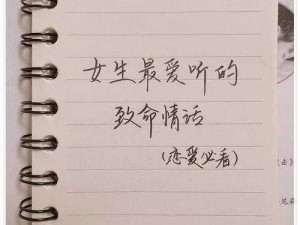 女生最爱听的
致命情话
(恋爱必看)